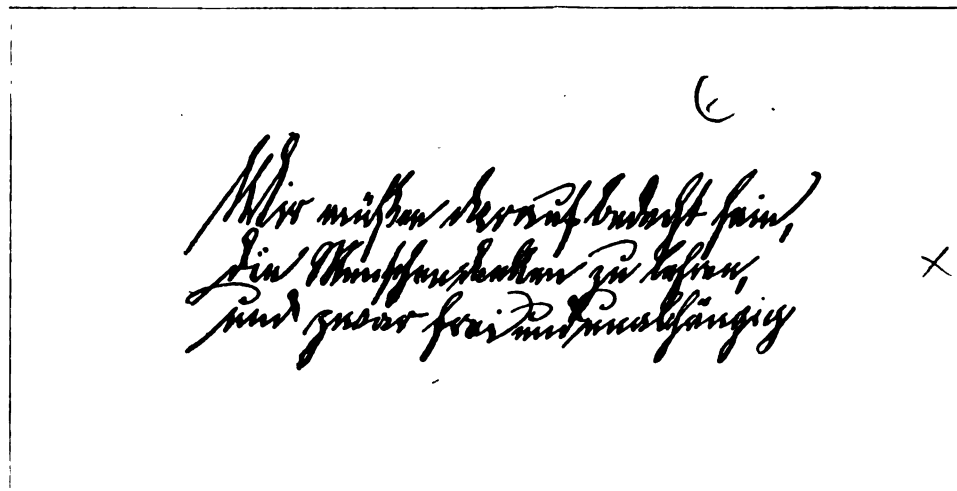 Wir müßen darauf bedacht sein,
die Menschen denken zu lehren,
und zwar frei und unabhängig